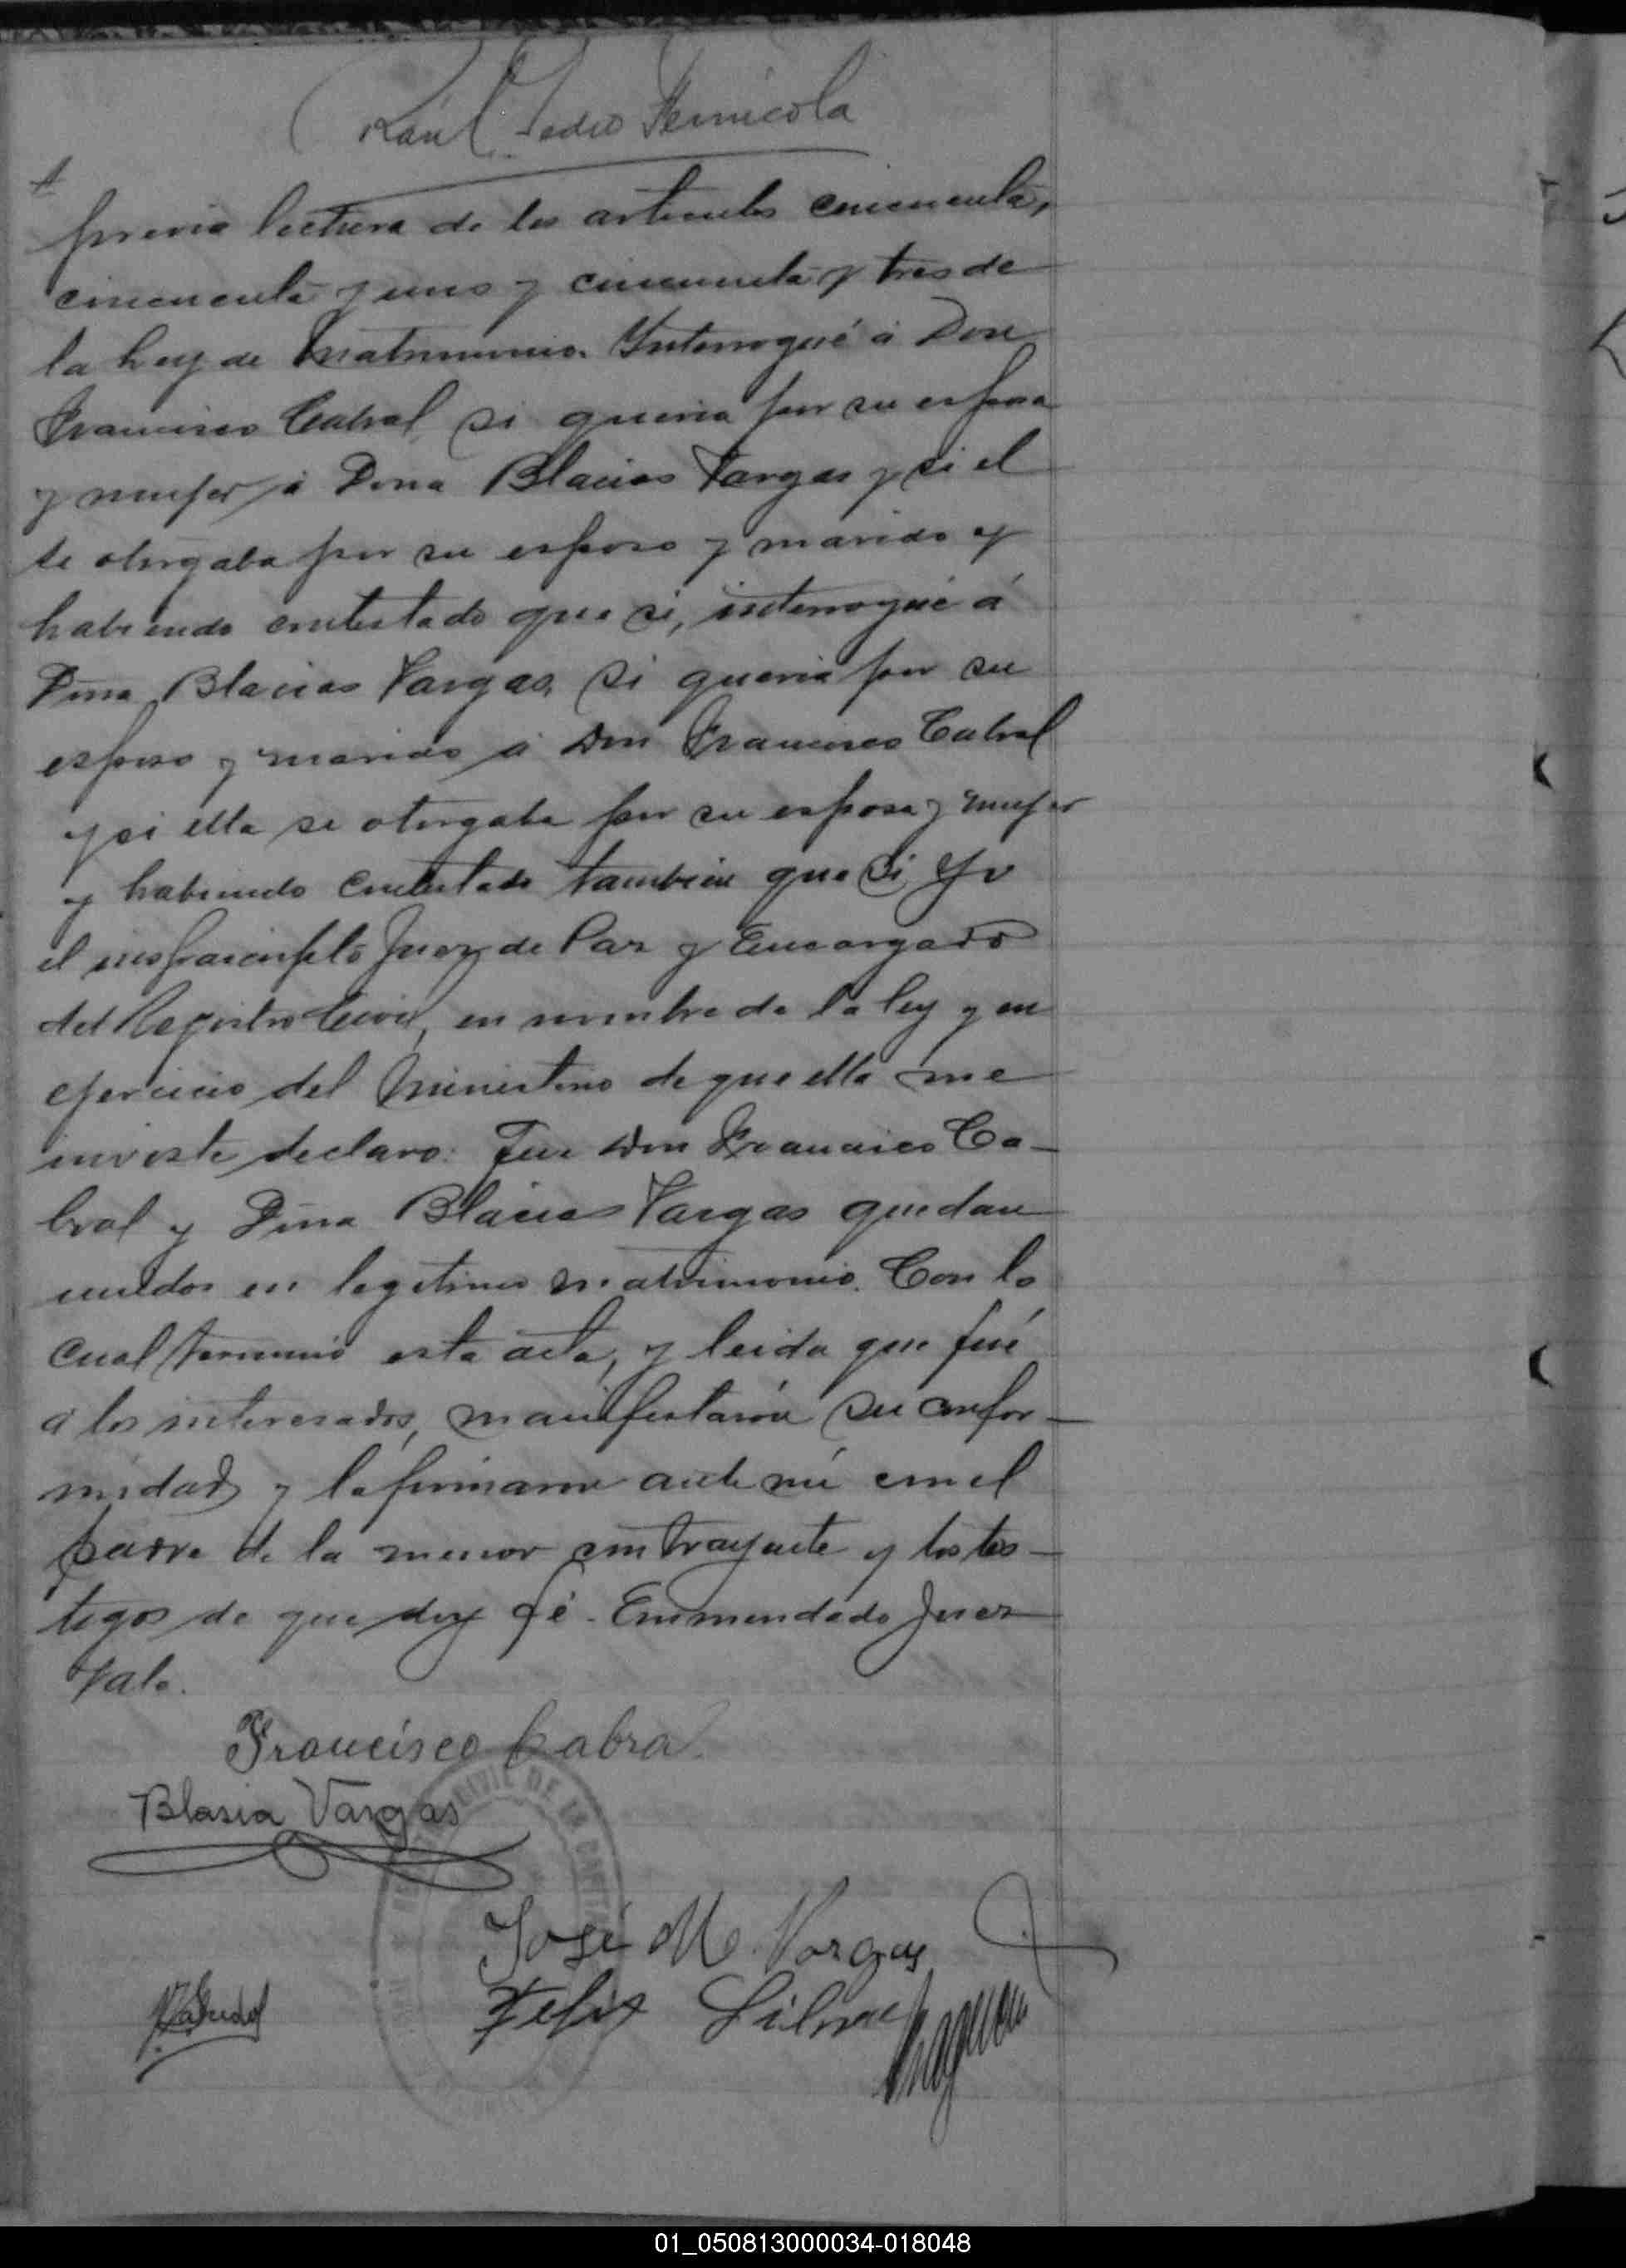 Raúl Pedro Pernicola
previa lectura de los articulos cincuenta,
cincuenta y uno y cincuenta y tres de
la Ley de Matrimonio. Interrogué á Don
Francisco Cabral, si queria por su esposa
y mujer á Dona Blacias Vargas y si el
se otorgaba por su esposo y marido y
habiendo contestado que si, interrogué á
Dona Blacias Vargas, si queria por su
esposo y marido á Don Francisco Cabral
y si ella se otorgaba por su esposa y mujer
y habiendo contestado tambien que si Yo
el infrascripto Juez de Paz y Encargado
del Registro Civil, en nombre de la ley y en
ejercicio del Ministerio de que ella me
inviste declaro: Que Don Francisco Ca-
bral y Dona Blacias Vargas quedan
unidos en legitimo matrimonio. Con lo
cual terminó esta acta, y leida que fué
á los interesados, manifestaron su confor-
midad y la firmaron ante mi con el
padre de la menor contrayente y los tes-
tigos de que doy fé. Enmendado Juez
Vale.
Francisco Cabral
Blasia Vargas
CIVIL DE LA CAPITAL
José M. Vargas
Felix
01_050813000034-018048